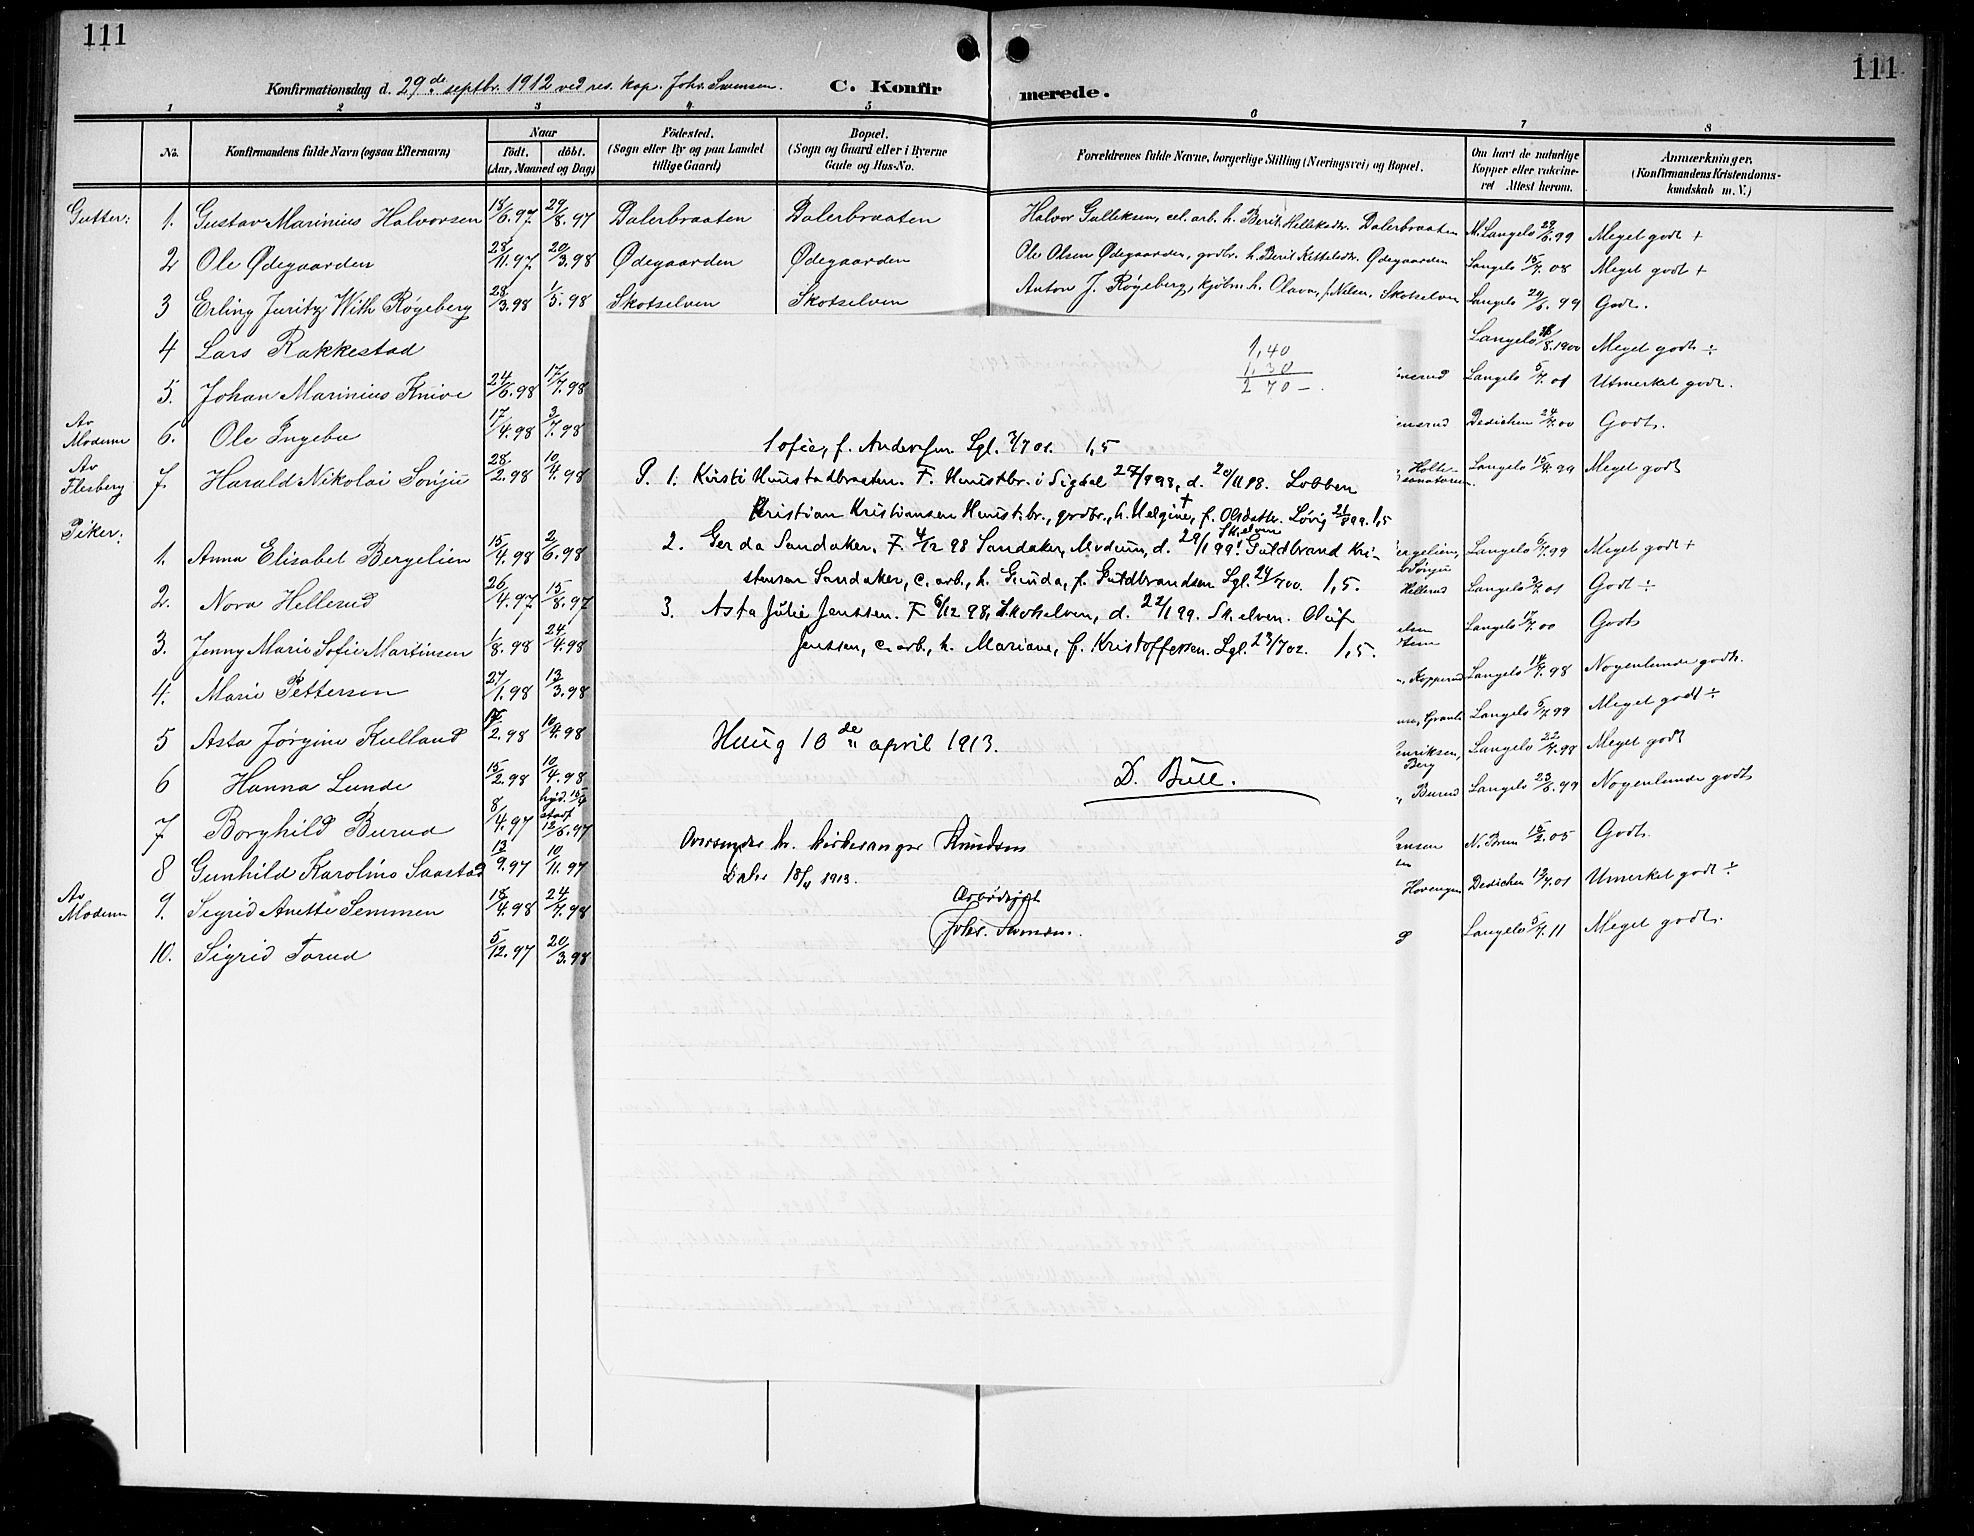 111
111
Konfirmationsdag d. 29de septbr. 1912 ved res. kap. Johs. Svensen. C. Konfirmerede.
1 2 3 4 5 6 7 8
No. Konfirmandens fulde Navn (ogsaa Efternavn) Naar födt, döbt. (Aar, Maaned og Dag) Födested. (Sogn eller By og paa Landet tillige Gaard) Bopæl. (Sogn og Gaard eller i Byerne Gade og Hus-No. Forældrenes fulde Navne, borgerlige Stilling (Næringsvei) og Bopæl. Om havt de naturlige Kopper eller vakvineret Attest herom. Anmærkninger. (Konfirmandens Kristendomskundskab m. V.)
Gutter: 1. Gustav Marinius Halvorsen 18/6.97 29/8.97 Dalerbraaten Dalerbraaten Halvor Gulleksen, cel. arb. h. Berit Helleksdtr. Dalerbraaten M. Langelo 29/6.99 Meget godt +
2 Ole Ødegaarden 28/11.97 20/3.98 Ødegaarden Ødegaarden Ole Olsen Ødegaarden, grdbr. h. Berit Kettelsdtr. Ødegaarden Langelo 15/7.08 Meget godt +
3 Erling Juritz With Røgeberg 28/3.98 1/5.98 Skotselven Skotselven Anton J. Røgeberg, kjøbm. h. Olava, f. Nilsen, Skotselven Langelo 20/6.99 Godt.
4 Lars Rakkestad Langelo /8.1900 Meget godt ÷
5. Johan Marinius Knive 24/6.98 17/7.98 enerud Langelo 5/7.01 Utmerket godt.
Av Modum 6. Ole Ingebu 17/4.98 3/7.98 enerud Dedichen 24/7.00 Godt.
Av Flesberg 7. Harald Nikolai Sønju 28/2.98 10/4.98 Holte-sanatorium. Langelo 15/4.99 Meget godt
Piker: 1. Anna Elisabet Bergelien 15/4.98 2/6.98 ergelien, Sønju Langelo 6/7.99 Meget godt +
2. Nora Hellerud 26/4.97 15/8.97 Hellerud Langelo 3/7.01 Godt ÷
3. Jenny Marie Sofie Martinsen 1/8.98 24/4.98 elsen Langelo 17/7.00 Godt
4. Marie Pettersen 27/1.98 13/3.98 Kopperud Langelo 14/7.98 Nogenlunde godt.
5 Asta Jørgine Kulland 17/2.98 10/4.98 Langelo 5/7.99 Meget godt ÷
6 Hanna Lunde 15/2.98 10/4.98 enriksen, Berg Langelo 22/7.98 Meget godt
7 Borghild Burud 8/4.97 hjd. 15/4 stadf 12/6.97 Burud Langelo 23/6.99 Nogenlunde godt
8 Gunhild Karoline Saastad 13/9.97 10/11.97 ensen N. Bruu 15/2.05 Godt.
Av Modum 9. Sigrid Anette Semmen 18/4.98 24/7.98 Hovengen Dedichen 12/7.01 Utmerket godt ÷
10. Sigrid Torud 5/12.97 20/3.98 Langelo 5/7.11 Meget godt.
1,40
1,30
2 70 -.
Sofie, f. Andersen. Lgl. 3/7 01. 1,5
P. 1. Kirsti Hunstadbraaten. F. Hunstbr. i Sigdal 27/9 98, d. 20/11 98. Lobben
Kristian Kristiansen Hunst.br., grdbr., h. Helgine +, f. Olsdatter. Løvig 21/8 99. 1,5
2. Gerda Sandaker, F 4/12 98 Sandaker, Modum, d. 29/1 99. Sk.elven Guldbrand Kri-
stensen Sandaker, c. arb., h. Gunda, f. Guldbrandsen Lgl. 24/7 00. 1,5.
3. Asta Julie Jenssen. F 6/12 98, Skotselven, d. 22/1 99. Sk.elven. Oluf
Jenssen, c. arb., h. Mariane, f. Kristoffersen. Lgl. 23/7 02. 1,5.
Haug 10de april 1913.
D. Bull.
Oversendes hr. kirkesanger Knudsen
18/4 1913.
Ærbødigst
Johs. Svensen.